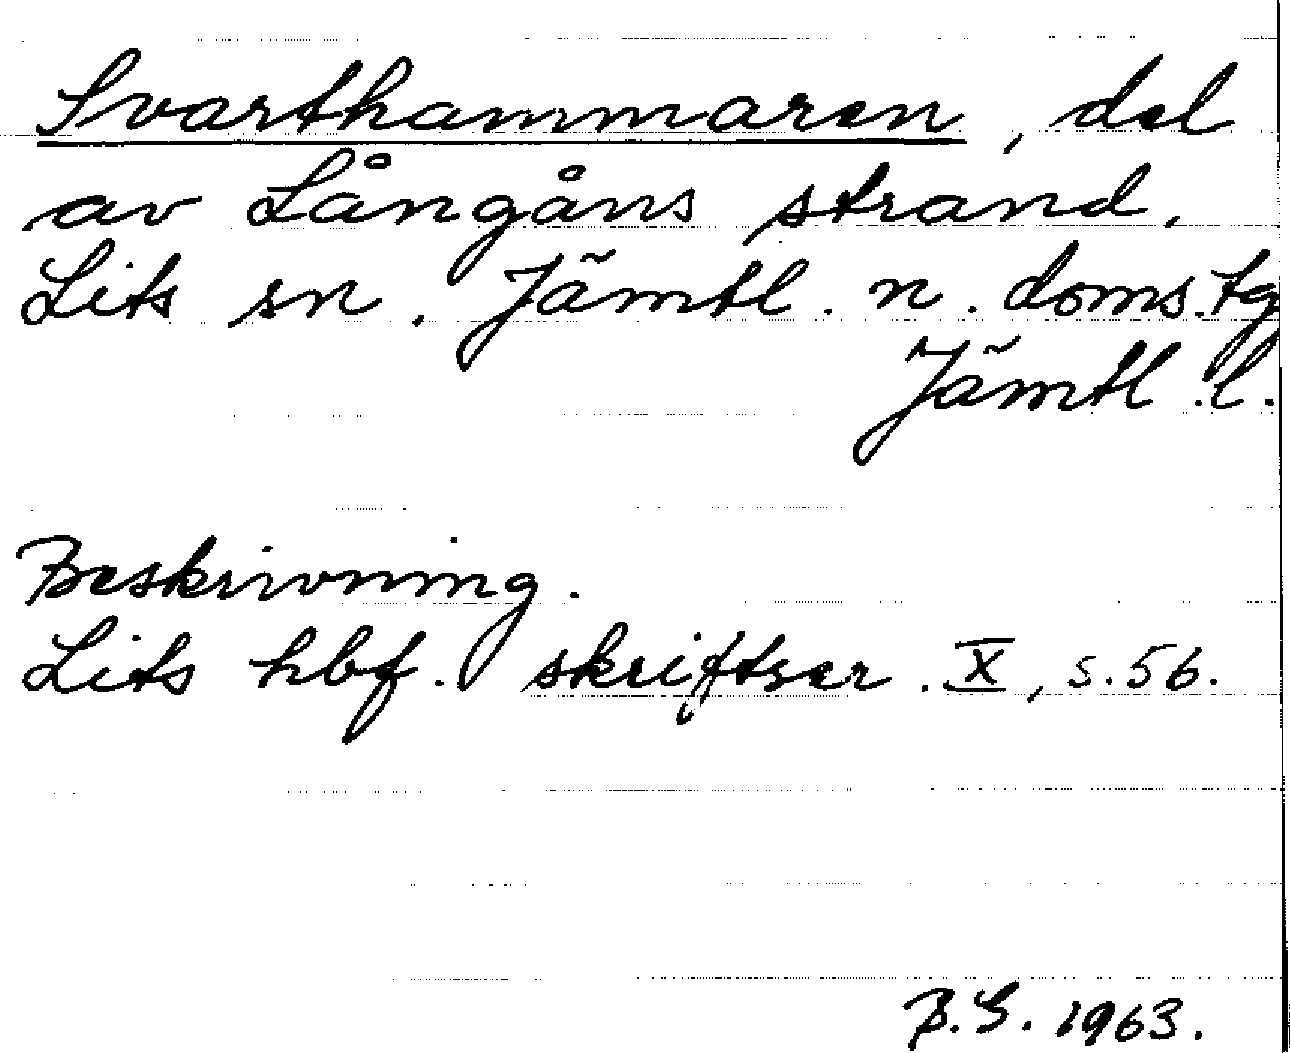 Svarthammaren, del
av Långåns strand.
Lits sn. Jämtl. n. doms. tg
Jämtl. l.
Beskrivning.
Lits hbf. skriftser. X, s. 56.
B.G. 1963.